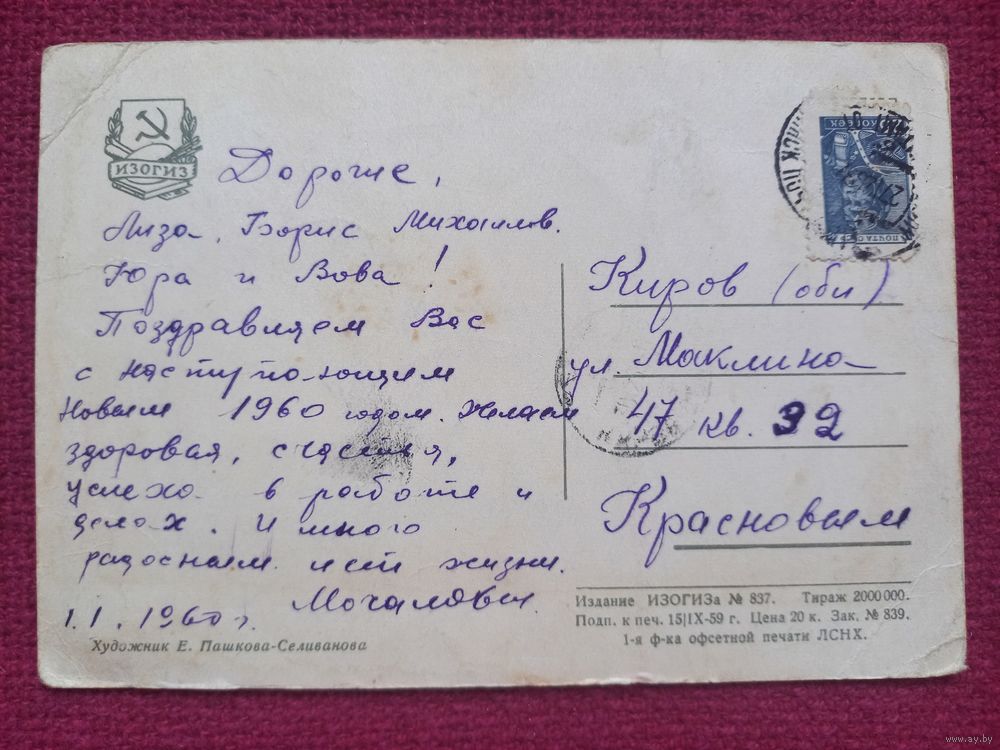 ИЗОГИЗ
Дорогие,
Лиза, Борис Михайлов.
Юра и Вова!
Поздравляем Вас
с наступающим
Новым 1960 годом. Желаем
здоровая, счастья,
успеха в работе и
делах. И много
радосным лет жизни.
Мочаловы.
1.1.1960 г.
Художник Е. Пашкова-Селиванова
Киров (обл)
ул. Маклина
47 кв. 32
Красновым
Издание ИЗОГИЗа № 837. Тираж 2000000.
Подп. к печ. 15|IX-59 г. Цена 20 к. Зак. № 839.
1-я ф-ка офсетной печати ЛСНХ.
ПОЧТА СССР
www.ay.by